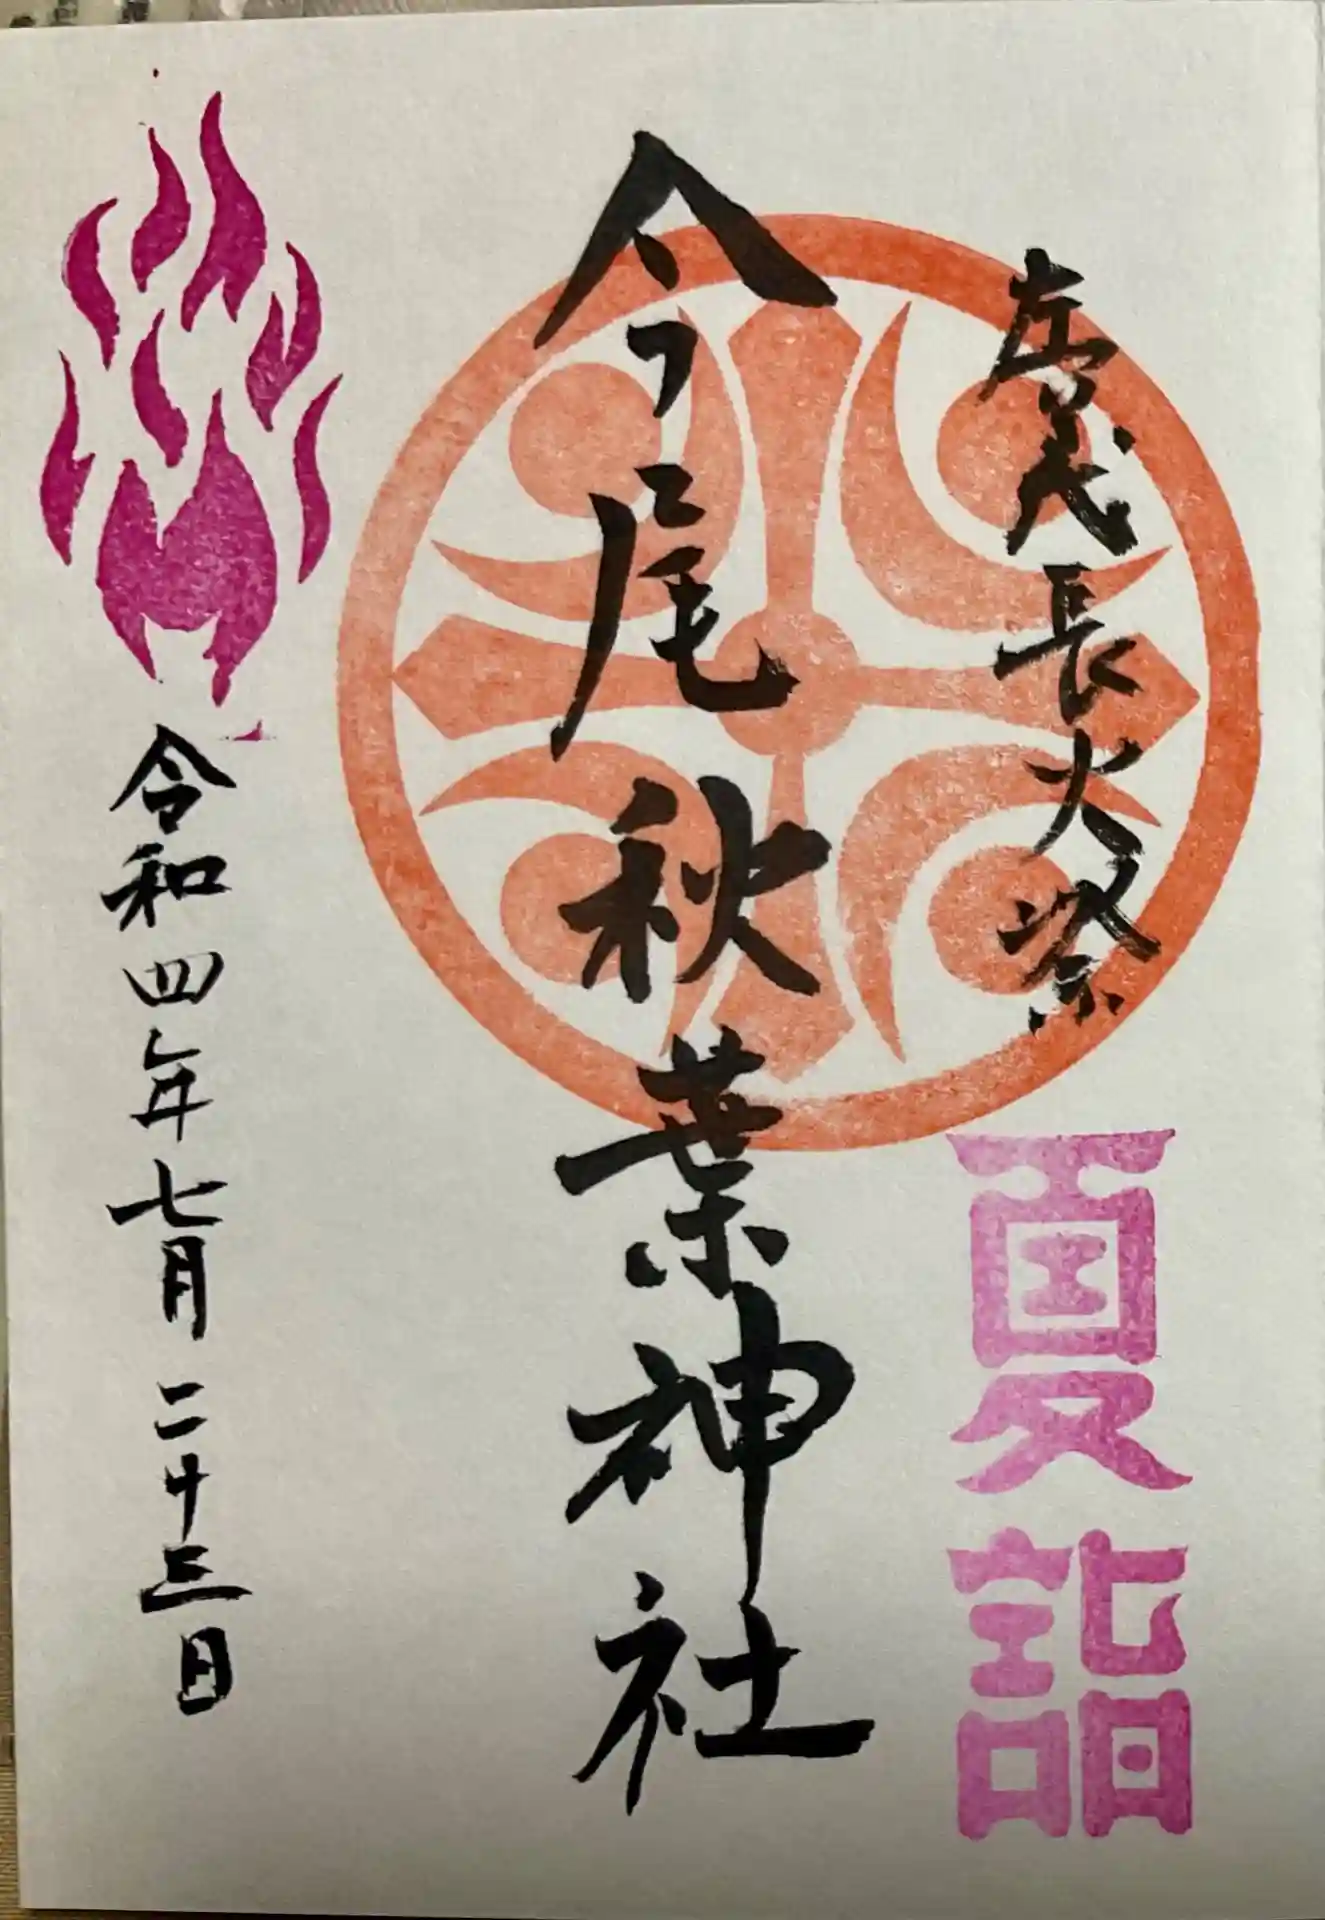 左義長火祭
夏詣
今尾秋葉神社
令和四年七月二十三日